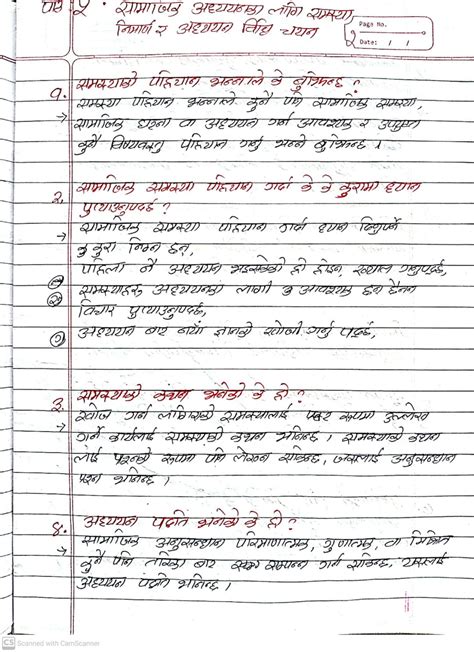 पाठ २. सामाजिक अध्ययनका लागि समस्या
निर्माण र अध्ययन विधि चयन
Page No.
२
Date: / /
१. समस्याको पहिचान भन्नाले के बुझिन्छ ?
→ समस्या पहिचान भन्नाले कुनै पनि सामाजिक समस्या,
सामाजिक घटना वा अध्ययन गर्न आवश्यक र उपयुक्त
कुनै विषयवस्तु पहिचान गर्नु भन्ने बुझिन्छ ।
२. सामाजिक समस्या पहिचान गर्दा के के कुरामा ध्यान
पुर्याउनुपर्दछ ?
→ सामाजिक समस्या पहिचान गर्दा ध्यान दिनुपर्ने
कुरा निम्न छन्,
पहिला नै अध्ययन भइसकेको हो होइन, ख्याल गनुपर्दछ,
समस्याहरू अध्ययनका लागी आवश्यक छन् छैनन
विचार पुर्याउनुपर्दछ,
अध्ययन बाट नयाँ ज्ञानको खोजी गर्नु पर्दछ,
३. समस्याको कथन भनेको के हो ?
→ खोज गर्न लागिएको समस्यालाई प्रष्ट रूपमा उल्लेख
गर्ने कार्यलाई समस्याको कथन भनिन्छ । समस्याको कथन
लाई प्रश्नको रूपमा पनि लेख्न सकिन्छ, जसलाई अनुसन्धान
प्रश्न भनिन्छ ।
४. अध्ययन पद्दति भनेको के हो ?
→ सामाजिक अनुसन्धान परिमाणात्मक, गुणात्मक, वा मिश्रित
कुनै पनि तरिका बाट सम्पन्न गर्न सकिन्छ, यसलाई
अध्ययन पद्दति भनिन्छ ।
CS Scanned with CamScanner